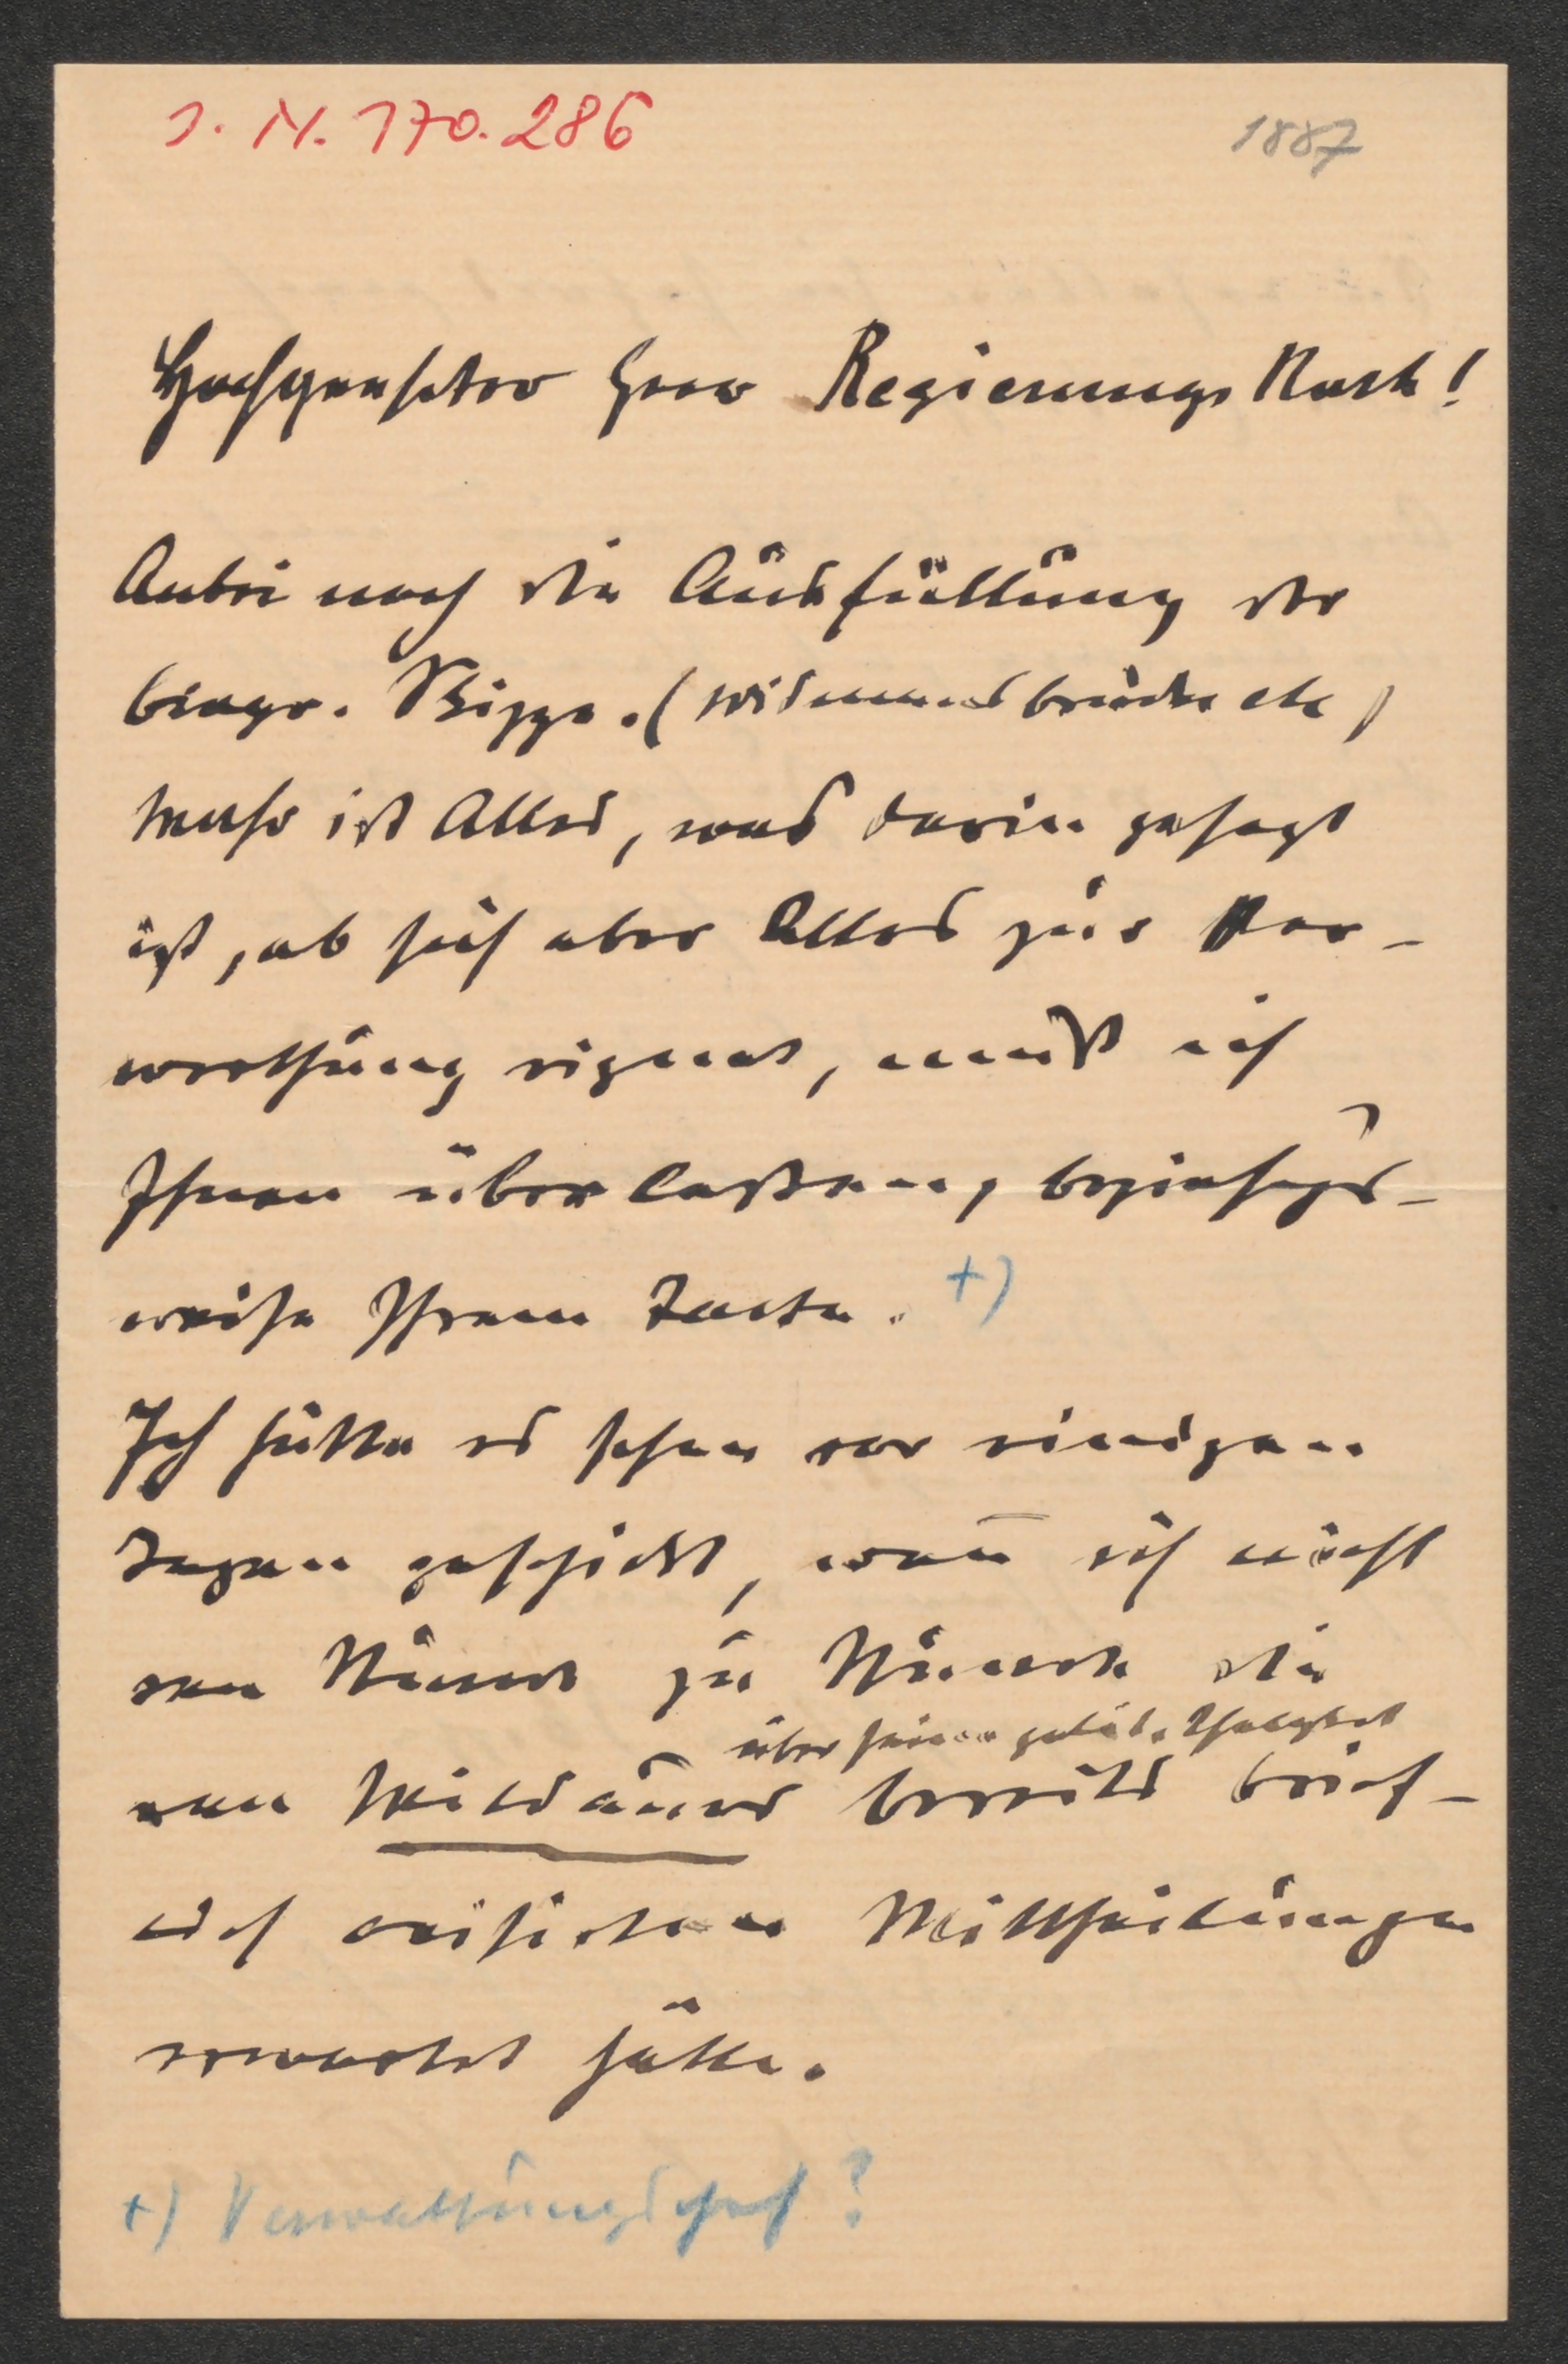 I. N. 170.286
1887
Hochgeehrter Herr Regierungs Rath!
Anbei noch die Ausfüllung der
biogr. Skizze. (
Wahr ist Alles, was darin gesagt
ist, ob sich aber Alles zur Ver-
werthung eignet, muß ich
Ihnen überlassen, beziehgs-
weise Ihrem Takte. +)
Ich hätte es schon vor einigen
Tagen geschickt, wen̄ ich nicht
von Stunde zu Stunde die
über seine
von Wildauer bereits brief-
lich avisirten Mittheilungen
erwartet hätte.
+)